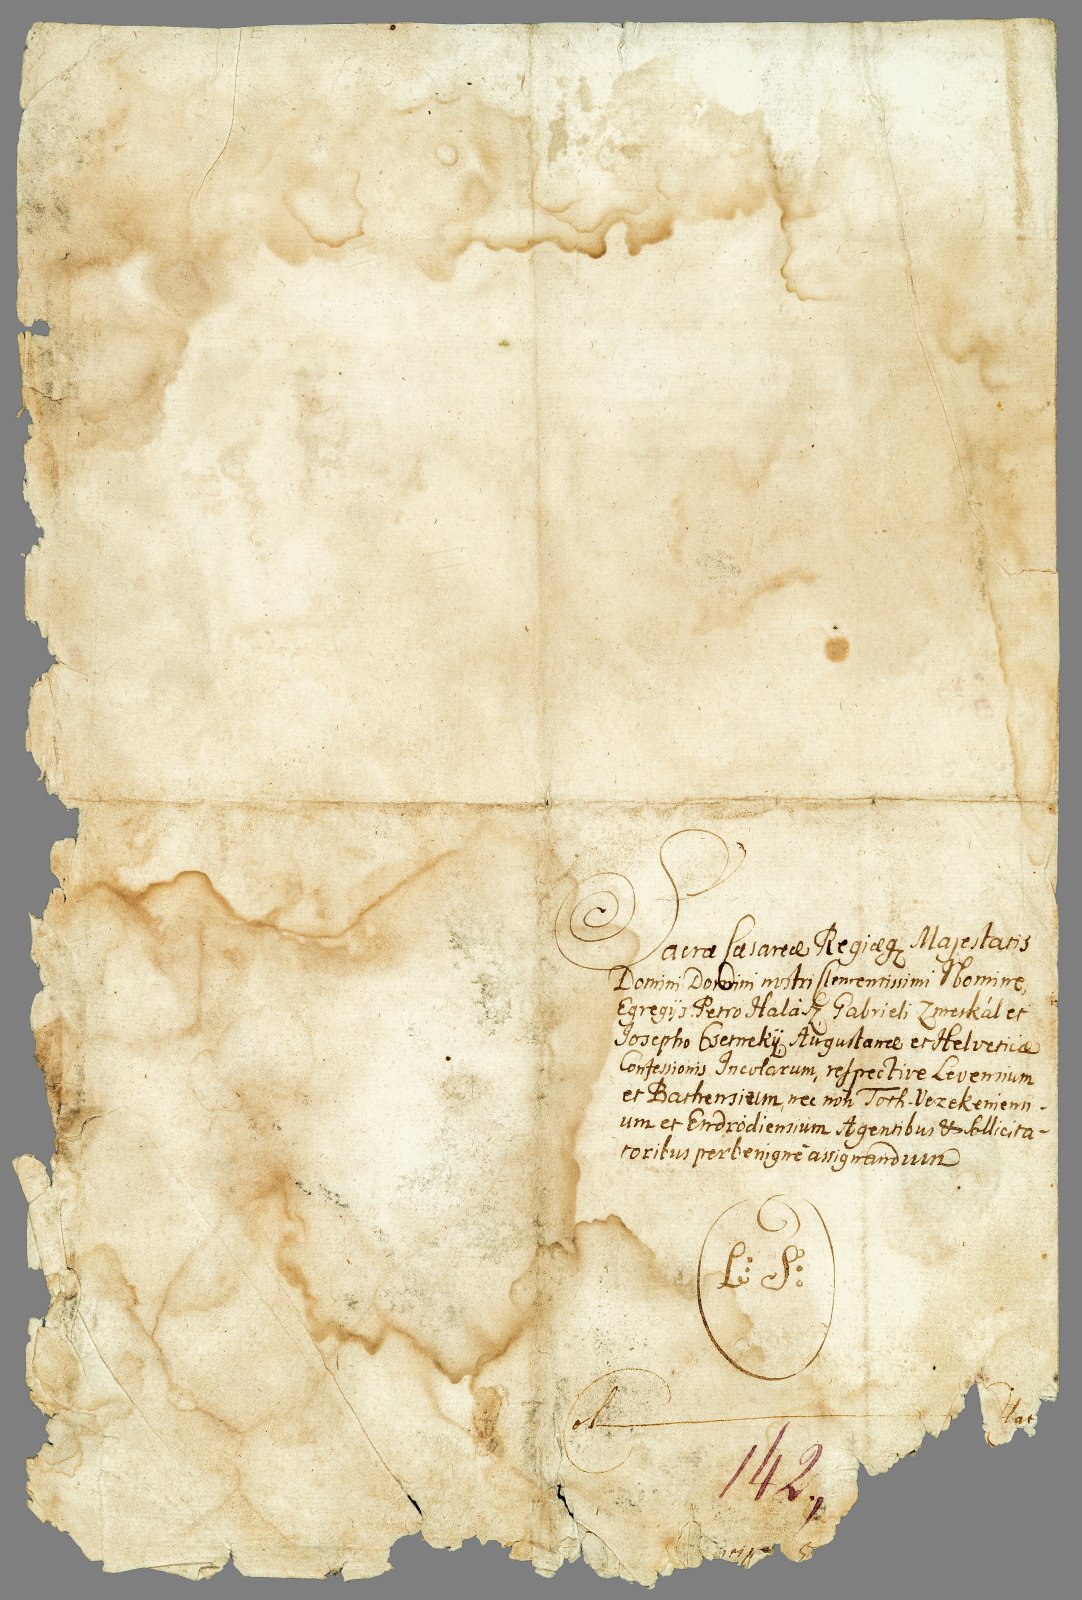 Sacræ Cæsareæ Regiæq Majestatis
Domini Domini nostri Clementissimi Nomine,
Egregijs Petro Halász Gabrieli Zmeskál et
Josepho Csernekÿ Augustanæ et Helveticæ
Confessionis Incolarum, respective Levensium
et Bathensium, nec non Toth-Vezekeniensi-
um et Endrödiensium Agentibus et sollicita-
toribus perbenigne assignandum
L: S:
142,